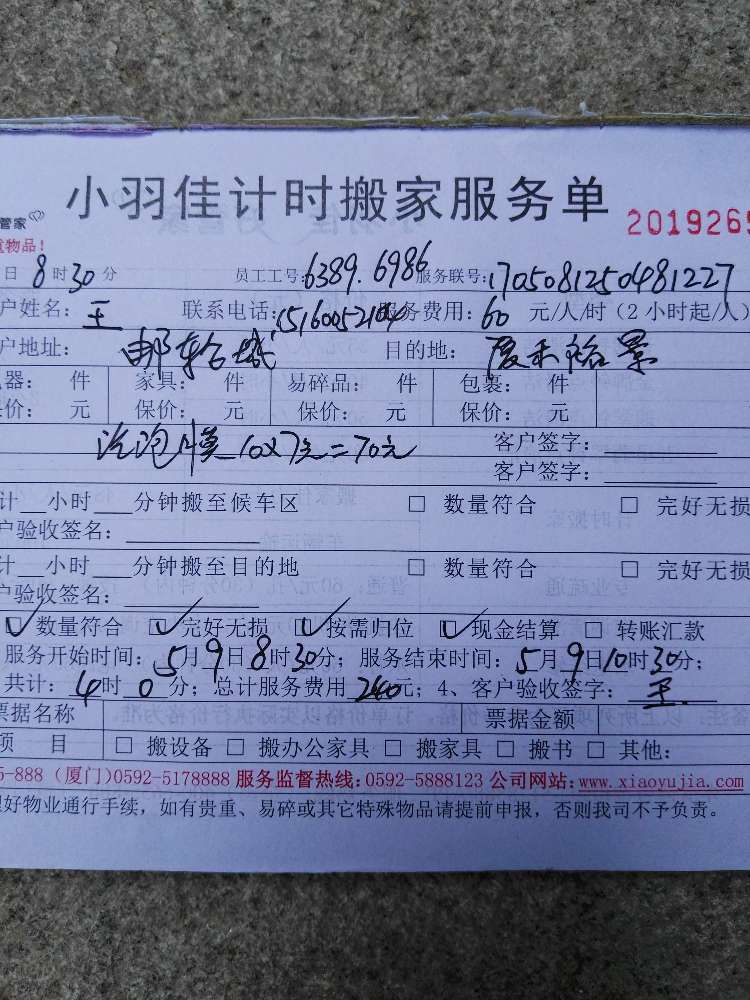 小羽佳计时搬家服务单
管家
物品! 2019265
日8时30分 员工工号:6389.6986 服务联号:1705081250481227
户姓名:王 联系电话:15160052104 服务费用:60元/人/时(2小时起/人)
户地址: 邮轮城 目的地: 厦禾裕景
器: 件 家具: 件 易碎品: 件 包裹: 件
价: 元 保价: 元 保价: 元 保价: 元
汽泡膜10×7元=70元 客户签字:
客户签字:
计__小时___分钟搬至候车区 □ 数量符合 □ 完好无损
户验收签名:
计__小时___分钟搬至目的地 □ 数量符合 □ 完好无损
户验收签名:
☑ 数量符合 ☑ 完好无损 ☑ 按需归位 ☑ 现金结算 □ 转账汇款
服务开始时间:5月9日8时30分;服务结束时间:5月9日10时30分;
共计:4时0分;总计服务费用240元;4、客户验收签字:王
票据名称 票据金额
项 目 □ 搬设备 □ 搬办公家具 □ 搬家具 □ 搬书 □ 其他:
5-888 (厦门)0592-5178888 服务监督热线:0592-5888123 公司网站:www.xiaoyujia.com
理好物业通行手续,如有贵重、易碎或其它特殊物品请提前申报,否则我司不予负责。